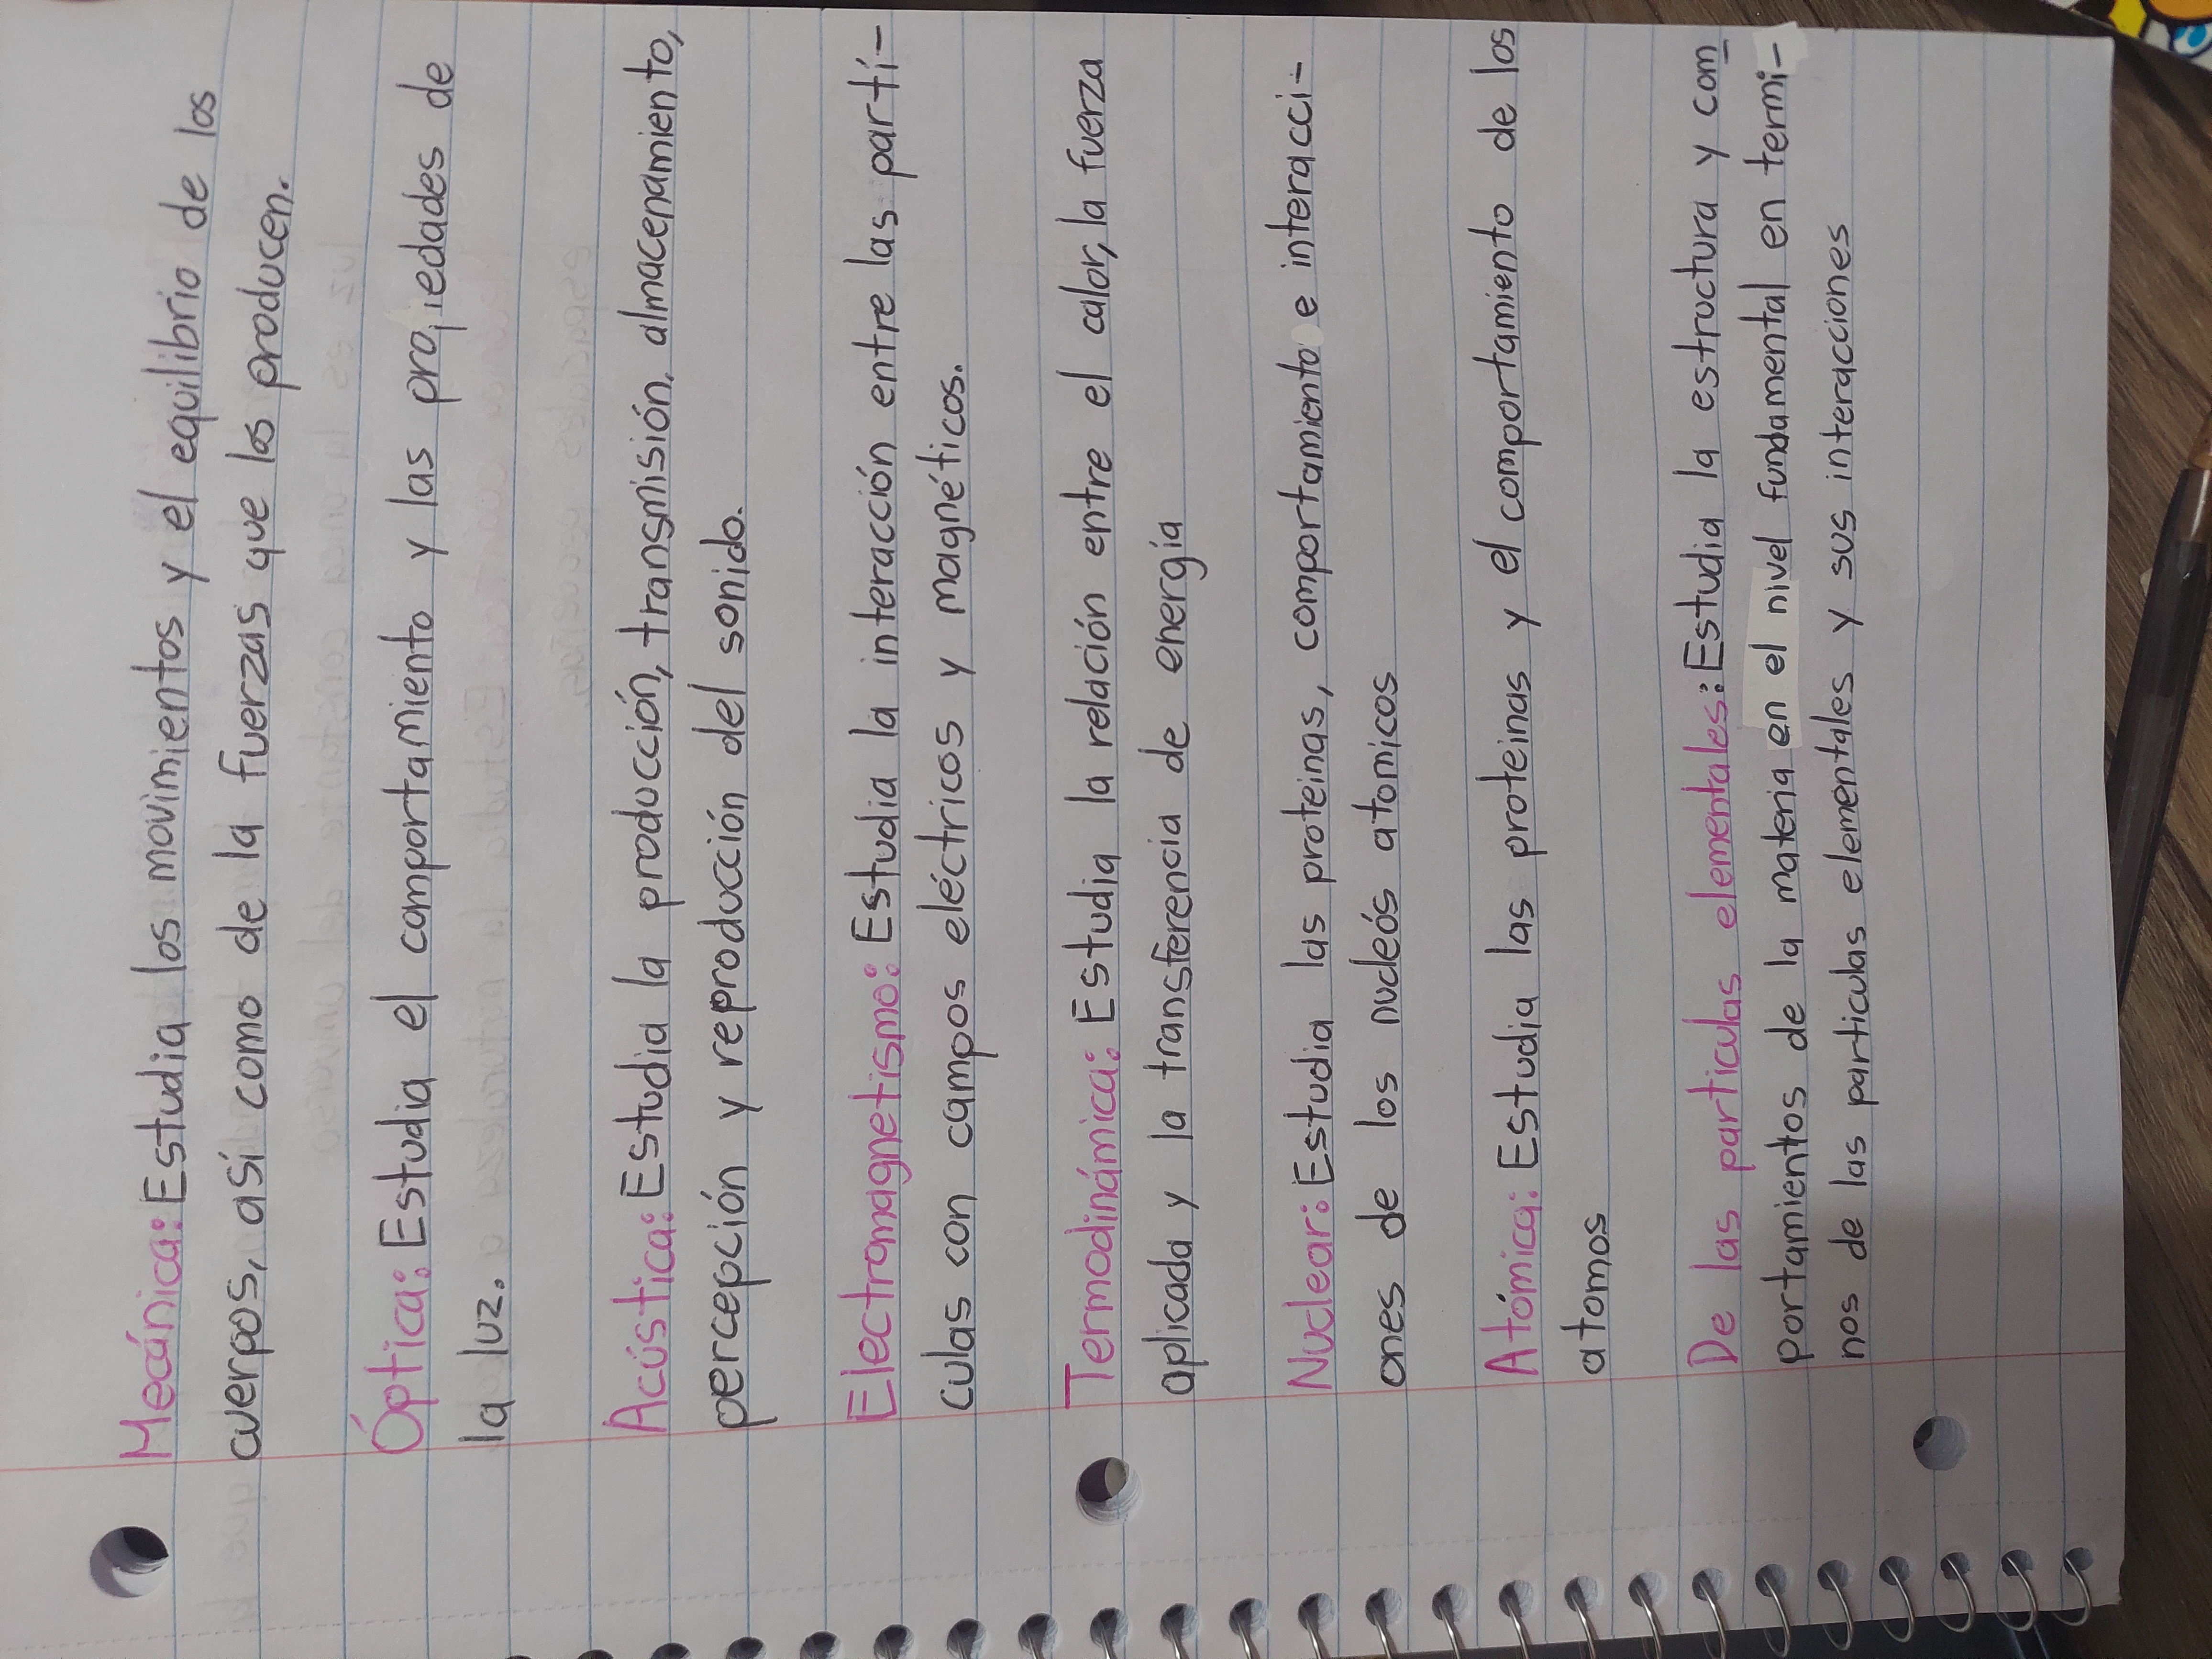 Mecánica: Estudia los movimientos y el equilibrio de los
cuerpos, así como de la fuerzas que los producen.
Óptica: Estudia el comportamiento y las propiedades de
la luz.
Acústica: Estudia la producción, transmisión, almacenamiento,
percepción y reproducción del sonido.
Electromagnetismo: Estudia la interacción entre las partí-
culas con campos eléctricos y magnéticos.
Termodinámica: Estudia la relación entre el calor, la fuerza
aplicada y la transferencia de energía
Nuclear: Estudia las proteinas, comportamiento e interacci-
ones de los nucleós atomicos
Atómica: Estudia las proteinas y el comportamiento de los
atomos
De las particulas elementales: Estudia la estructura y com
portamientos de la materia en el nivel fundamental en termi-
nos de las particulas elementales y sus interacciones